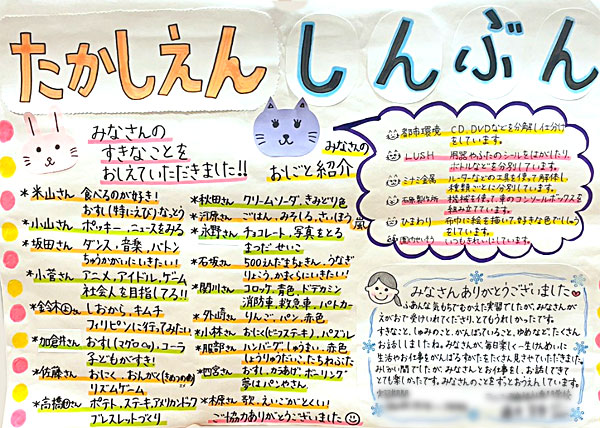 たかしえん しんぶん
みなさんの
すきなことを
おしえていただきました!!
みなさんの
おしごと紹介
都市環境 CD、DVDなどを分解し仕分け
をしています。
LUSH 用器やふたのシールをはがしたり、
ボトルなどを分別しています。
ミナミ金属 ルーターなどの工具を使って解体し、
種類ごとに分別しています。
機械を使って、車のコンソールボックスを
組み立てています。
ひまわり 布巾に絵を描いて、好きな色でししゅう
をしています。
園内せいそう いつもきれいにしています。
*米山さん 食べるのが好き!
おすし(特にえび)・なっとう
*小山さん ポッキー、ニュースをみる
*坂田さん ダンス、音楽、バトン
ちゅうかがいにいきたい!
*小菅さん アニメ、アイドル、ゲーム
社会人を目指してろ!!
*鈴木さん しおから、キムチ
フィリピンに行ってみたい
*加倉井さん おすし(マグロ)、コーラ
子どもがすき!
*佐藤さん おにく、おんがく
リズムゲーム
*高橋さん ポテト、ステーキ、アメリカンドック
ブレスレットづくり
*秋田さん クリームソーダ、きみどり色
*河原さん ごはん、みそしる、さいほう
*永野さん チョコレート、写真をとる 嵐
まつだせいこ
*石坂さん 500えんだまちょきん、うなぎ
りょこう、かまくらにいきたい!
*関川さん コロッケ、青色、ドデカミン
消防車、救急車、パトカー
*外崎さん りんご、パン、赤色
*小林さん おにく(ビーフステーキ)、パズル
*服部さん ハンバーグ、しゅうまい、赤色
しょうりゅうだい、たちねぶた
*四宮さん おすし、からあげ、ボーリング
夢はパンやさん
*木原さん 歌、えいごかとくい!
ご協力ありがとうございました
みなさんありがとうございました
ふあんな気もちでむかえた実習でしたが、みなさんが
えがおで受けいれてくださり、とてもうれしかったです。
すきなこと、しゅみのこと、がんばっていること、ゆめなど、たくさん
お話しましたね。みなさんが、毎日楽しく一生けんめいに
生活やお仕事をがんばるすがたをたくさん見させていただきました。
みじかい間でしたが、みなさんとお仕事をし、お話しできて
とても楽しかったです。みなさんのことをずっとおうえんしています。